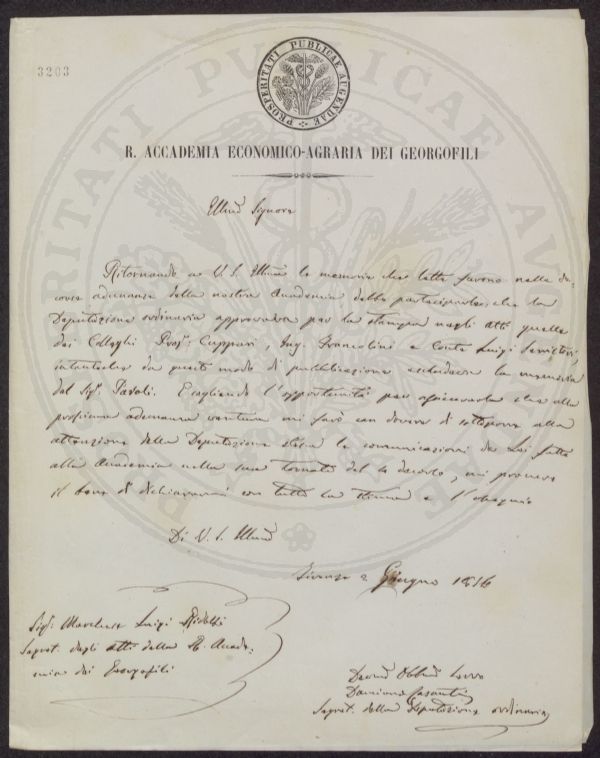 3203
PROSPERITATI PUBLICAE AUGENDAE
R. ACCADEMIA ECONOMICO-AGRARIA DEI GEORGOFILI
Signore
Ritornando a V. S. Illma le memorie che lette furono nella de-
corsa adunanza della nostra Accademia debbo parteciparle, che la
Deputazione ordinaria approvava per la stampa negli Atti quelle
dei Colleghi Prof. Cuppari, Ing. Francolini e Conte Luigi Serristori,
da questo modo di pubblicazione la memoria
del Sig. Pavoli. E cogliendo l'opportunità per che alla
prossima adunanza ventura mi farò un dovere di sottoporre alla
attenzione della Deputazione stessa le comunicazioni da Lei fatte
alla Accademia nella sua tornata del 4 decorso, mi procuro
il bene di dichiararmi con tutta la stima e l'ossequio
Di V. S. Illma
Firenze 2 Giugno 1856
Sig. Marchese Luigi Ridolfi
Segret. degli atti della R. Accade-
mia dei Georgofili
Devmo Obblmo Servo
Damiano Casanti
Segret. della Deputazione ordinaria